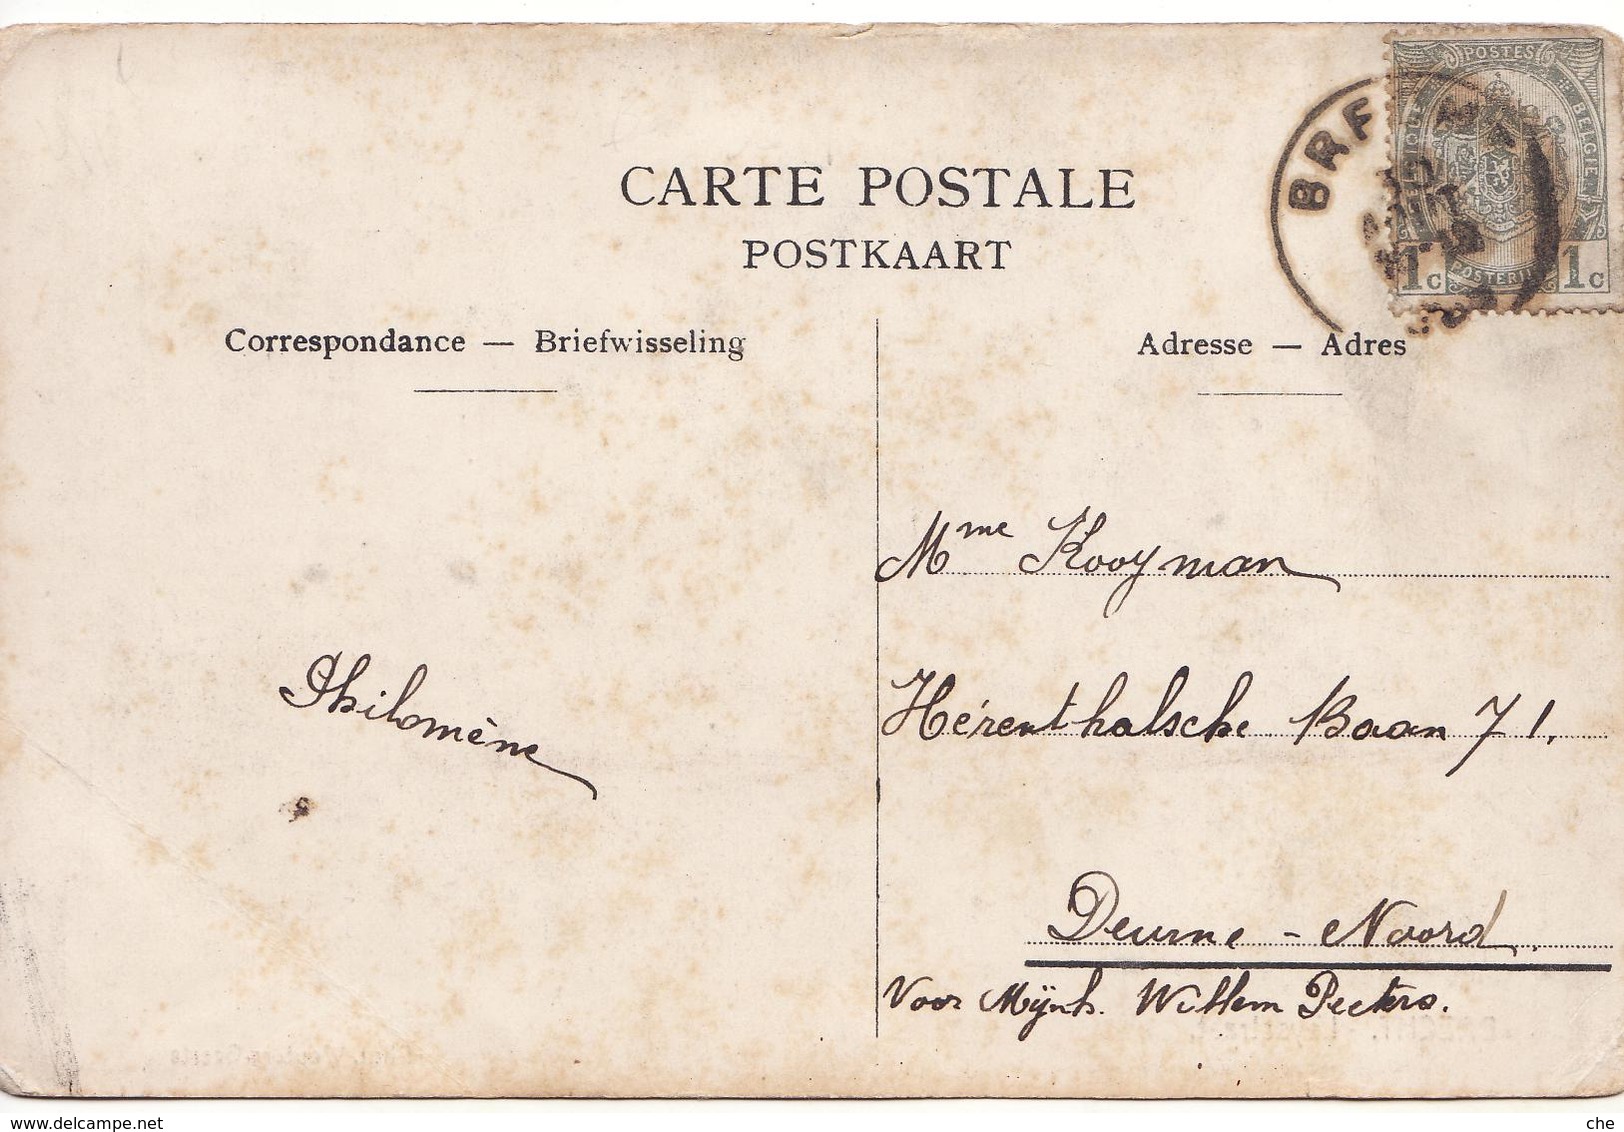 CARTE POSTALE
POSTKAART
POSTES
BELGIE
1c 1c
Correspondance — Briefwisseling
Adresse — Adres
Mme Kooyman
Philomène
Hérenthalsche Baan 71.
Deurne - Noord.
Voor Mijnh. Willem Peeters.
www.delcampe.net
che